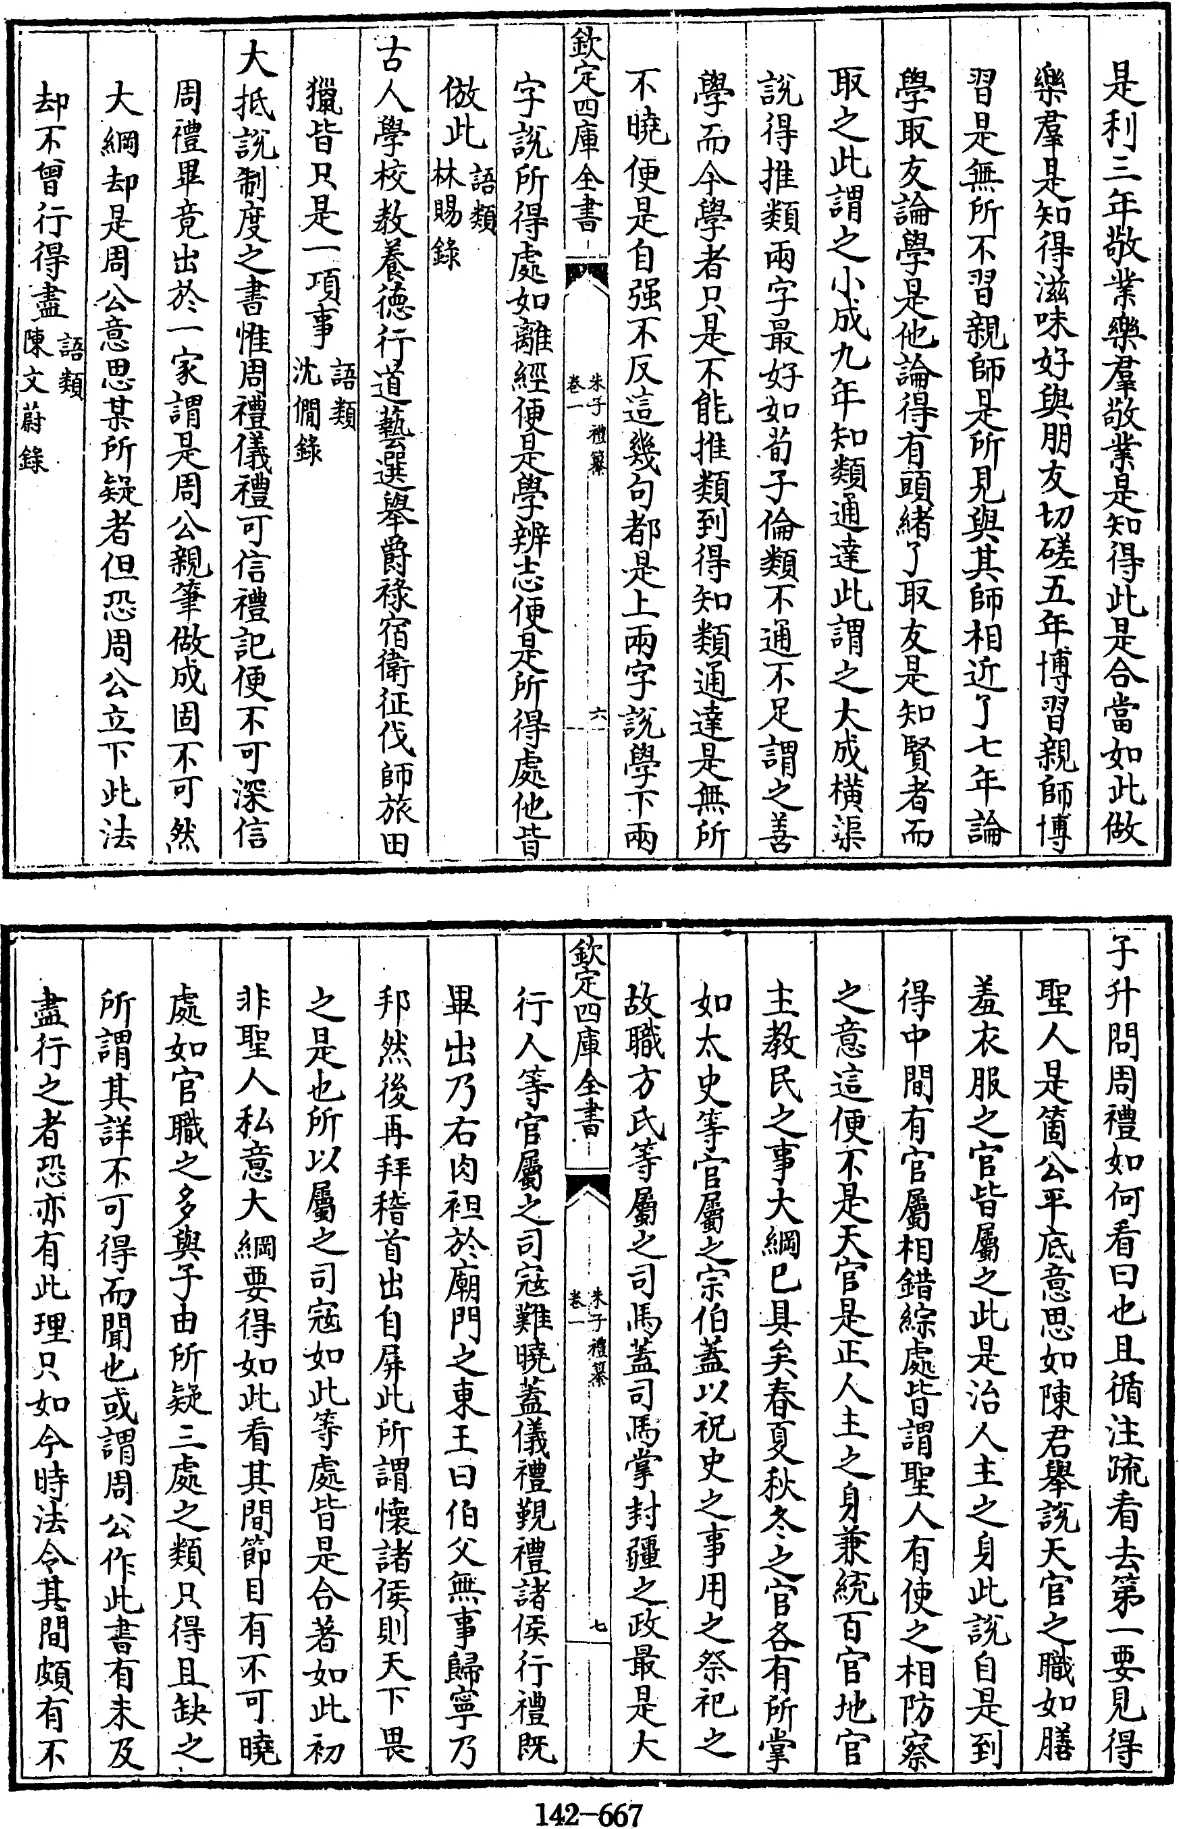 是利三年敬業樂羣敬業是知得此是合當如此做
樂羣是知得滋味好與朋友切磋五年博習親師博
習是無所不習親師是所見與其師相近了七年論
學取友論學是他論得有頭緒了取友是知賢者而
取之此謂之小成九年知類通達此謂之大成橫渠
說得推類兩字最好如荀子倫類不通不足謂之善
學而今學者只是不能推類到得知類通達是無所
不曉便是自强不反這幾句都是上兩字說學下兩
欽定四庫全書
朱子禮纂
卷一
六
字說所得處如離經便是學辨志便是所得處他皆
倣此語類
林賜錄
古人學校教養德行道藝選舉爵祿宿衛征伐師旅田
獵皆只是一項事語類
沈僩錄
大抵說制度之書惟周禮儀禮可信禮記便不可深信
周禮畢竟出於一家謂是周公親筆做成固不可然
大綱却是周公意思某所疑者但恐周公立下此法
却不曾行得盡語類
陳文蔚錄
子升問周禮如何看曰也且循注疏看去第一要見得
聖人是箇公平底意思如陳君舉說天官之職如膳
羞衣服之官皆屬之此是治人主之身此說自是到
得中間有官屬相錯綜處皆謂聖人有使之相防察
之意這便不是天官是正人主之身兼統百官地官
主教民之事大綱已具矣春夏秋冬之官各有所掌
如太史等官屬之宗伯蓋以祝史之事用之祭祀之
故職方氏等屬之司馬蓋司馬掌封疆之政最是大
欽定四庫全書
朱子禮纂
卷一
七
行人等官屬之司寇難曉蓋儀禮覲禮諸侯行禮既
畢出乃右肉袒於廟門之東王曰伯父無事歸寧乃
邦然後再拜稽首出自屏此所謂懷諸侯則天下畏
之是也所以屬之司寇如此等處皆是合著如此初
非聖人私意大綱要得如此看其間節目有不可曉
處如官職之多與子由所疑三處之類只得且缺之
所謂其詳不可得而聞也或謂周公作此書有未及
盡行之者恐亦有此理只如今時法令其間頗有不
142-667